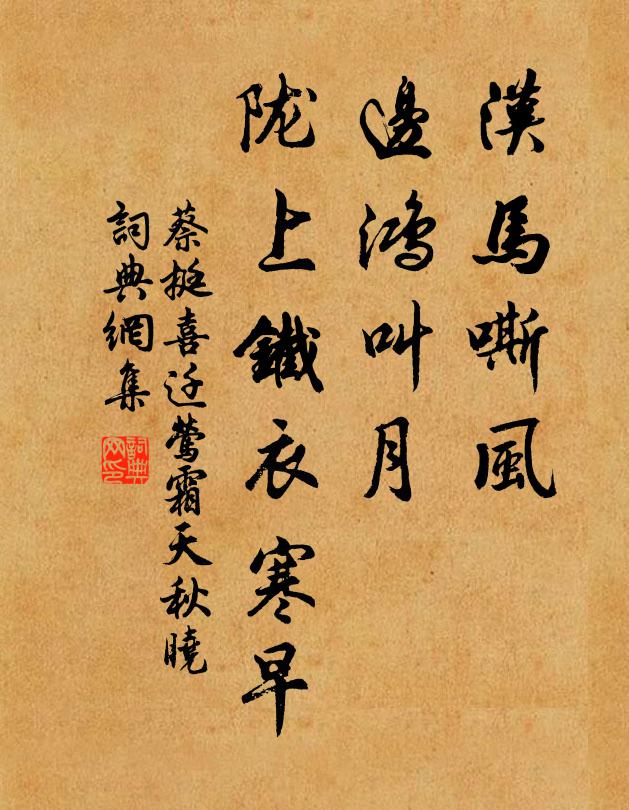 漢馬嘶風
邊鴻叫月
陇上鐵衣寒早
蔡挺喜迁鶯霜天秋曉
詞典網集
詞典网印